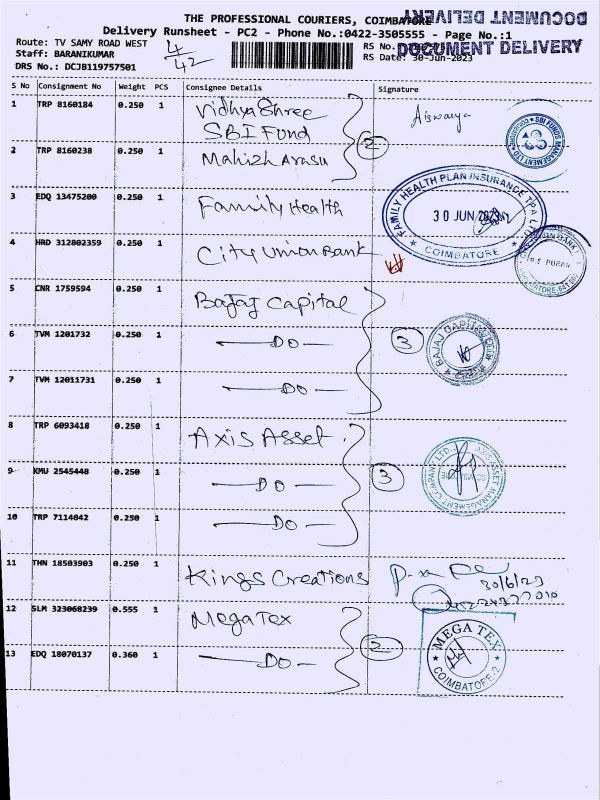 THE PROFESSIONAL COURIERS, COIMBATORE
DOCUMENT DELIVERY
Delivery Runsheet - PC2 - Phone No.:0422-3505555 - Page No.:1
DOCUMENT DELIVERY
Route: TV SAMY ROAD WEST
4/42
RS No.
Staff: BARANIKUMAR
RS Date: 30-Jun-2023
DRS No.: DCJB119757501
S No Consignment No Weight PCS Consignee Details Signature
1 TRP 8160184 0.250 1 Vidhya Shree
SBI Fund
Aiswarya
SBI FUNDS MANAGEMENT LTD COIMBATORE
2 TRP 8160238 0.250 1 Mahizh Arasu
2
3 EDQ 13475200 0.250 1 Family Health
FAMILY HEALTH PLAN INSURANCE TPA LTD
30 JUN 2023
COIMBATORE
4 HRD 312802359 0.250 1 City Union Bank
5 CNR 1759594 0.250 1 Bajaj Capital
6 TVM 1201732 0.250 1 — DO —
3
BAJAJ CAPITAL
7 TVM 12011731 0.250 1 — DO —
8 TRP 6093418 0.250 1 Axis Asset.
9 KMU 2545448 0.250 1 — DO —
3
AXIS ASSET MANAGEMENT COMPANY LTD
10 TRP 7114042 0.250 1 — DO —
11 THN 18503903 0.250 1 Kings Creations
30/6/23
12 SLM 323068239 0.555 1 Mega Tex
2
MEGA TEX
COIMBATORE-2
13 EDQ 18070137 0.360 1 — DO —